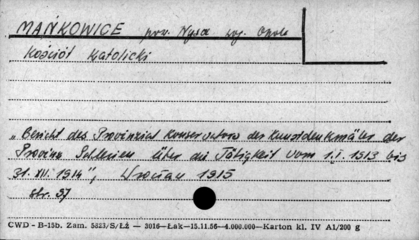 MAŃKOWICE pow. Nysa woj. Opole
Kościół Katolicki
„Bericht des Provinzial Konservators der Kunstdenkmäler der
Provinz Schlesien über die Tätigkeit vom 1.I.1913 bis
31.XII.1914", Wrocław 1915
str. 57
CWD - B-15b. Zam. 5823/S/Łż — 3016—Łak—15.11.56—4.000.000—Karton kl. IV A1/200 g